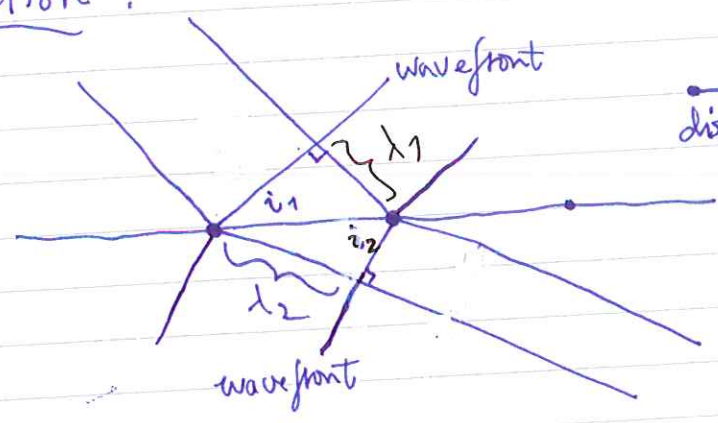 wavefront
λ1
i1
i2
λ2
wavefront